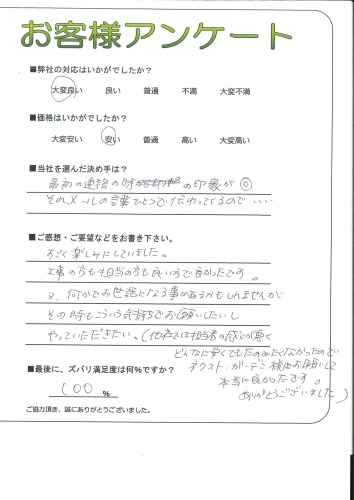 お客様アンケート
■弊社の対応はいかがでしたか?
大変良い 良い 普通 不満 大変不満
■価格はいかがでしたか?
大変安い 安い 普通 高い 大変高い
■当社を選んだ決め手は?
最初の連絡の時の印象が◎
それ、メールの言葉ひとつで伝わってくるので・・・・
■ご感想・ご要望などをお書き下さい。
すごく楽しみにしていました。
工事の方も担当の方も良い方で良かったです。
又、何かでお世話になる事があるかもしれませんが
その時もこういう気持ちでお願いしたいし
やっていただきたい。(他社では担当者の感じが悪く
どんなに安くてもたのみたくなかったので
ネクスト・ガーデン様にお願いして
本当に良かったです。
ありがとうございました)
■最後に、ズバリ満足度は何%ですか?
100 %
ご協力頂き、誠にありがとうございました。